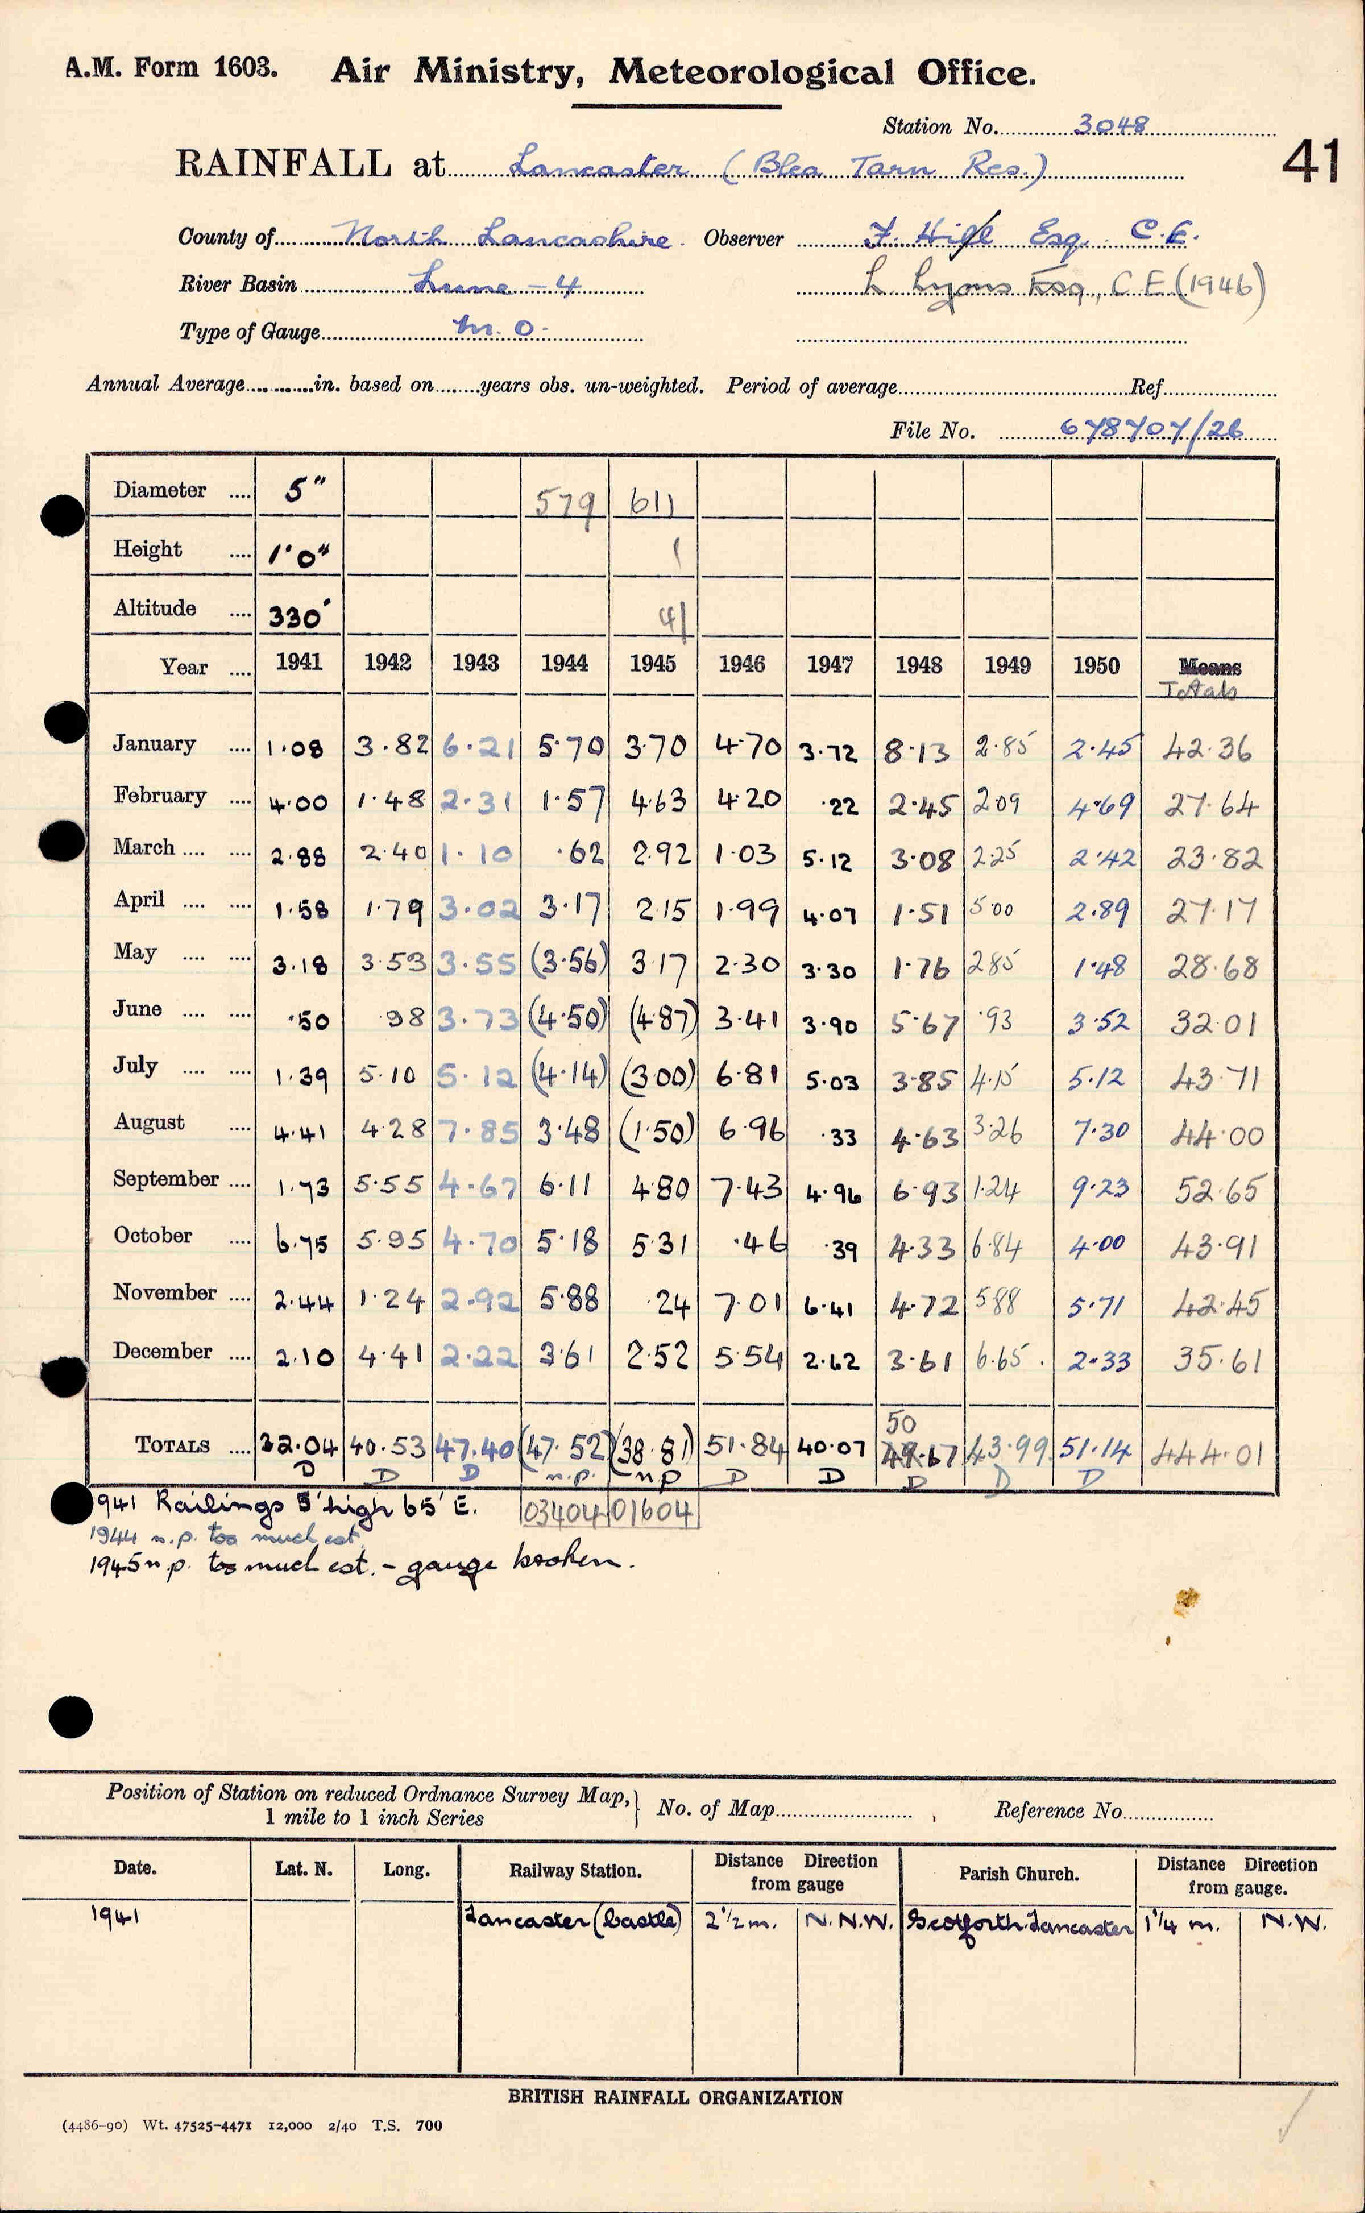 A.M. Form 1603. Air Ministry, Meteorological Office.
Station No. 3048
41
RAINFALL at Lancaster (Blea Tarn Res.)
County of North Lancashire Observer F. Hill Esq. C.E.
River Basin Lune - 4 L Lyons Esq., C E (1946)
Type of Gauge M.O.
Annual Average in. based on years obs. un-weighted. Period of average Ref.
File No. 678707/26
Diameter 5" 579 611
Height 1'0" 1
Altitude 330' 41
Year 1941 1942 1943 1944 1945 1946 1947 1948 1949 1950 Means
Totals
January 1.08 3.82 6.21 5.70 3.70 4.70 3.72 8.13 2.85 2.45 42.36
February 4.00 1.48 2.31 1.57 4.63 4.20 .22 2.45 2.09 4.69 27.64
March 2.88 2.40 1.10 .62 2.92 1.03 5.12 3.08 2.25 2.42 23.82
April 1.58 1.79 3.02 3.17 2.15 1.99 4.07 1.51 5.00 2.89 27.17
May 3.18 3.53 3.55 (3.56) 3.17 2.30 3.30 1.76 2.85 1.48 28.68
June .50 .98 3.73 (4.50) (4.87) 3.41 3.90 5.67 .93 3.52 32.01
July 1.39 5.10 5.12 (4.14) (3.00) 6.81 5.03 3.85 4.15 5.12 43.71
August 4.41 4.28 7.85 3.48 (1.50) 6.96 .33 4.63 3.26 7.30 44.00
September 1.73 5.55 4.67 6.11 4.80 7.43 4.96 6.93 1.24 9.23 52.65
October 6.75 5.95 4.70 5.18 5.31 .46 .39 4.33 6.84 4.00 43.91
November 2.44 1.24 2.92 5.88 .24 7.01 6.41 4.72 5.88 5.71 42.45
December 2.10 4.41 2.22 3.61 2.52 5.54 2.62 3.61 6.65 2.33 35.61
50
TOTALS 32.04 40.53 47.40 (47.52) (38.81) 51.84 40.07 49.67 43.99 51.14 444.01
D D D n.p. n p D D D D D
1941 Railings 5' high 65' E. 03404 01604
1944 n.p. too much est
1945 n.p. too much est. - gauge broken.
Position of Station on reduced Ordnance Survey Map, No. of Map Reference No.
1 mile to 1 inch Series
Date. Lat. N. Long. Railway Station. Distance Direction from gauge Parish Church. Distance Direction from gauge.
1941 Lancaster (Castle) 2 1/2 m. N.N.W. Scotforth Lancaster 1 1/4 m. N.W.
BRITISH RAINFALL ORGANIZATION
(4486-90) Wt. 47525-4471 12,000 2/40 T.S. 700